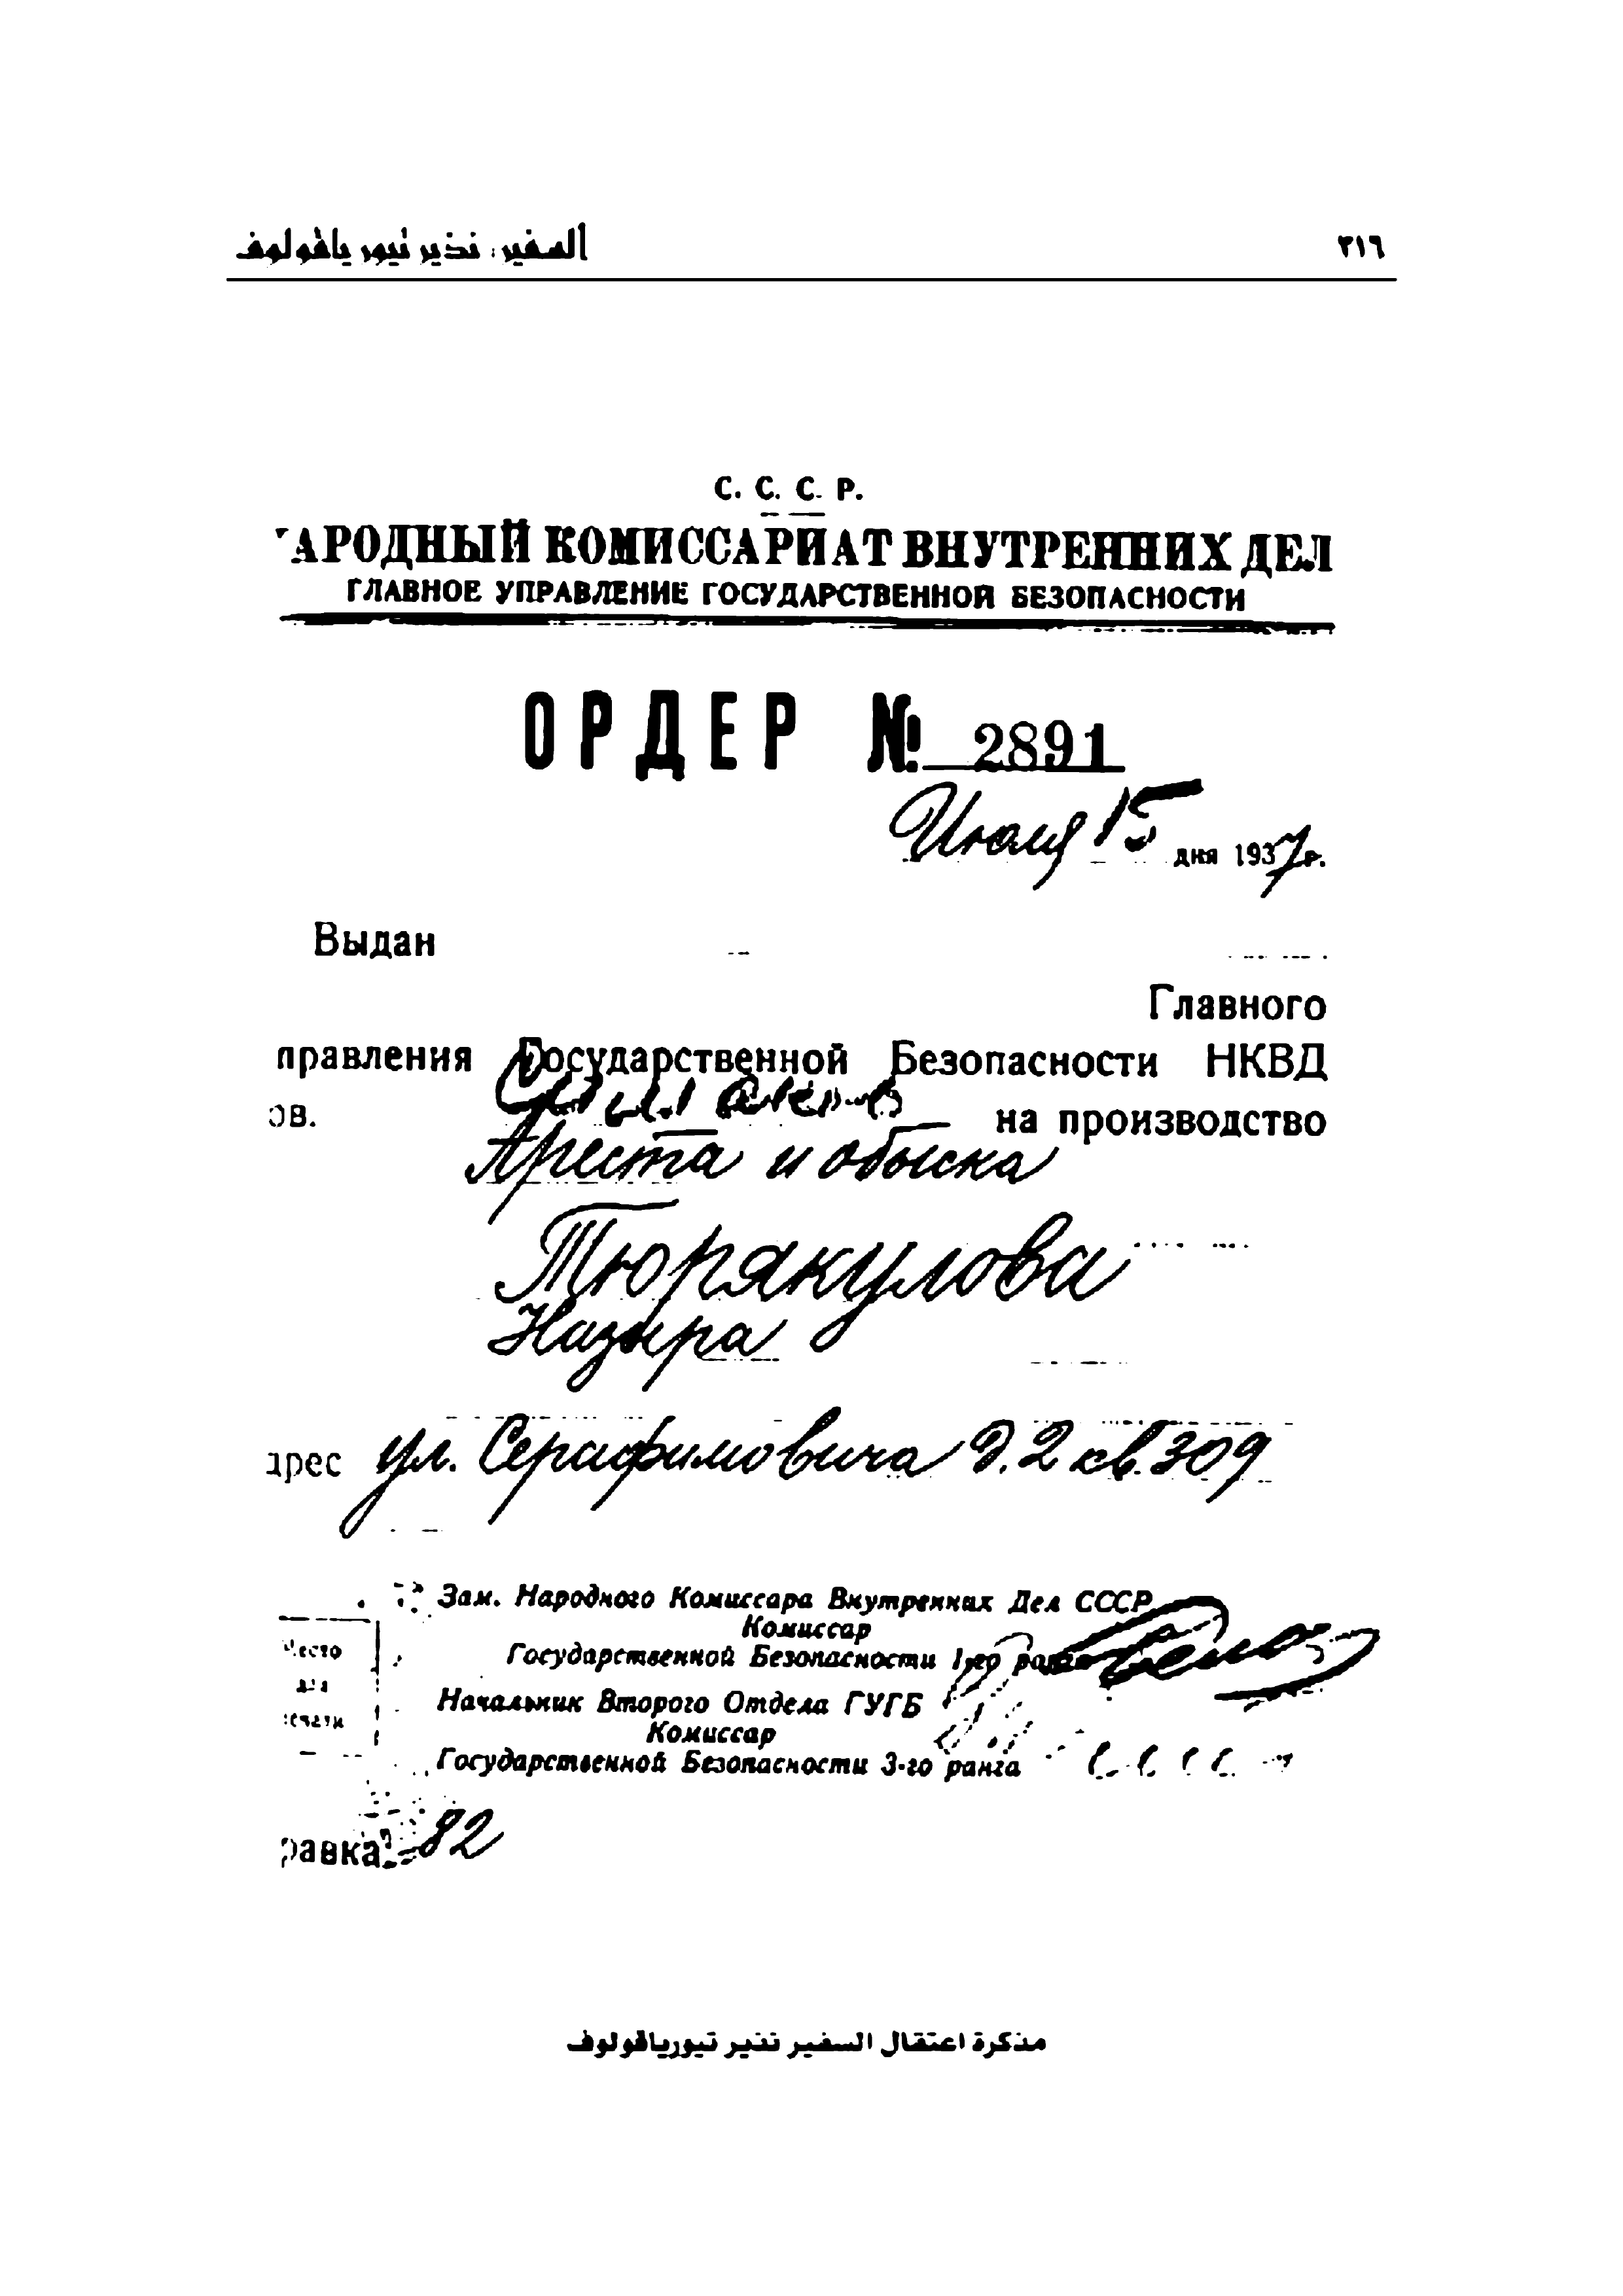 ٣١٦
السفير: نذير تيور ياقولوف
С. С. С. Р.
АРОДНЫЙ КОМИССАРИАТ ВНУТРЕННИХ ДЕЛ
ГЛАВНОЕ УПРАВЛЕНИЕ ГОСУДАРСТВЕННОЙ БЕЗОПАСНОСТИ
ОРДЕР № 2891
Июля 15 дня 1937 г.
Выдан
Главного
правления Государственной Безопасности НКВД
ов. на производство
Ареста и обыска
Тюрякулова
Назыра
дрес ул. Серафимовича д. 2 кв. 309
Зам. Народного Комиссара Внутренних Дел СССР
Комиссар
Государственной Безопасности 1-го ранга
Место
для
печати
Начальник Второго Отдела ГУГБ
Комиссар
Государственной Безопасности 3-го ранга
равка 82
مذكرة اعتقال السفير نذير تيورياقولوف